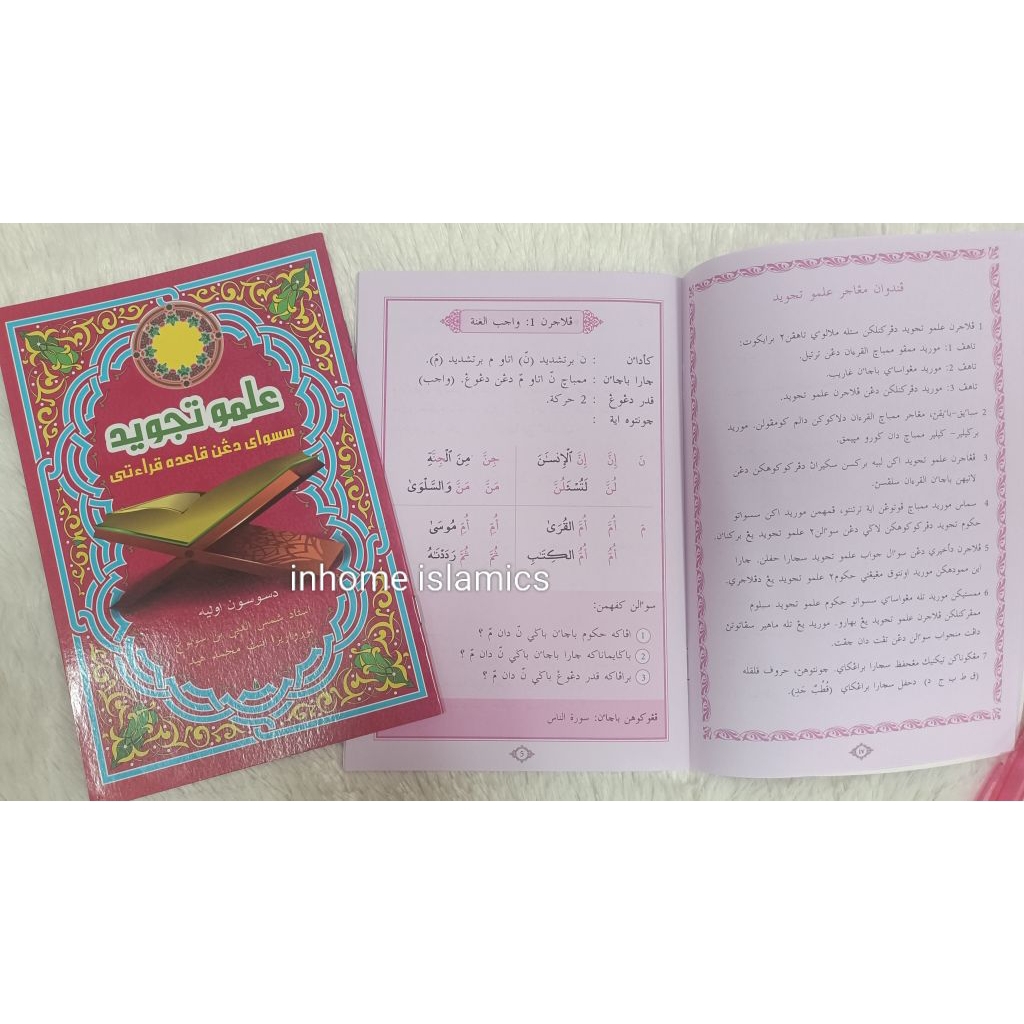 علمو تجويد
سسواي دڠن قاعده قراءتي
دسوسون اوليه
inhome islamics
ڤلاجرن 1: واجب الغنة
كأداٴن : ن برتشديد (نّ) اتاو م برتشديد (مّ).
چارا باچاٴن : ممباچ نّ اتاو مّ دڠن دڠوڠ. (واجب)
قدر دڠوڠ : 2 حركة.
چونتوه اية :
نَ إِنَّ إِنَّ الْإِنْسٰنَ جِنَّ مِنَ الْجِنَّةِ
لُنَّ لَتُسْـَٔلُنَّ مَنَّ مَنَّ وَالسَّلْوَىٰ
مَ أُمَّ أُمَّ الْقُرَىٰ أُمِّ أُمِّ مُوسَىٰ
أُمُّ أُمُّ الْكِتٰبِ ثُمَّ ثُمَّ رَدَدْنٰهُ
سوٴالن كفهمن:
1 اڤاكه حكوم باچاٴن باݢي نّ دان مّ ؟
2 باݢايماناكه چارا باچاٴن باݢي نّ دان مّ ؟
3 براڤاكه قدر دڠوڠ باݢي نّ دان مّ ؟
ڤڠوكوهن باچاٴن: سورة الناس
5
ڤندوان مڠاجر علمو تجويد
1 ڤلاجرن علمو تجويد دڤركنلكن ستله ملالوي تاهڤن٢ برايكوت:
تاهڤ 1: موريد ممڤو ممباچ القرءان دڠن ترتيل.
تاهڤ 2: موريد مڠواساي باچاٴن غاريب.
تاهڤ 3: موريد دڤركنلكن دڠن ڤلاجرن علمو تجويد.
2 سباٴيق-باٴيقڽ، مڠاجر ممباچ القرءان دلاكوكن دالم كومڤولن. موريد
برݢيلير- ݢيلير ممباچ دان ݢورو مڽيمق.
3 ڤڠاجرن علمو تجويد اكن لبيه بركسن سكيراڽ دڤركوكوهكن دڠن
لاتيهن باچاٴن القرءان سلڤسڽ.
4 سماس موريد ممباچ ڤوتوڠن اية ترتنتو، ڤمهمن موريد اكن سسواتو
حكوم تجويد دڤركوكوهكن لاݢي دڠن سوٴالن٢ علمو تجويد يڠ بركناٴن.
5 ڤلاجرن دأخيري دڠن سوٴال جواب علمو تجويد سچارا حفلن. چارا
اين ممودهكن موريد اونتوق مڠيڠتي حكوم٢ علمو تجويد يڠ دڤلاجري.
6 مستيكن موريد تله مڠواساي سسواتو حكوم علمو تجويد سبلوم
ممڤركنلكن ڤلاجرن علمو تجويد يڠ بهارو. موريد يڠ تله ماهير سڤاتوتڽ
داڤت منجواب سوٴالن دڠن تڤت دان چڤت.
7 مڠݢوناكن تيكنيك مڠحفظ سچارا براڠكاي. چونتوهڽ، حروف قلقله
(ق ط ب ج د) دحفل سچارا براڠكاي (قُطْبُ جَدٍ).
iv